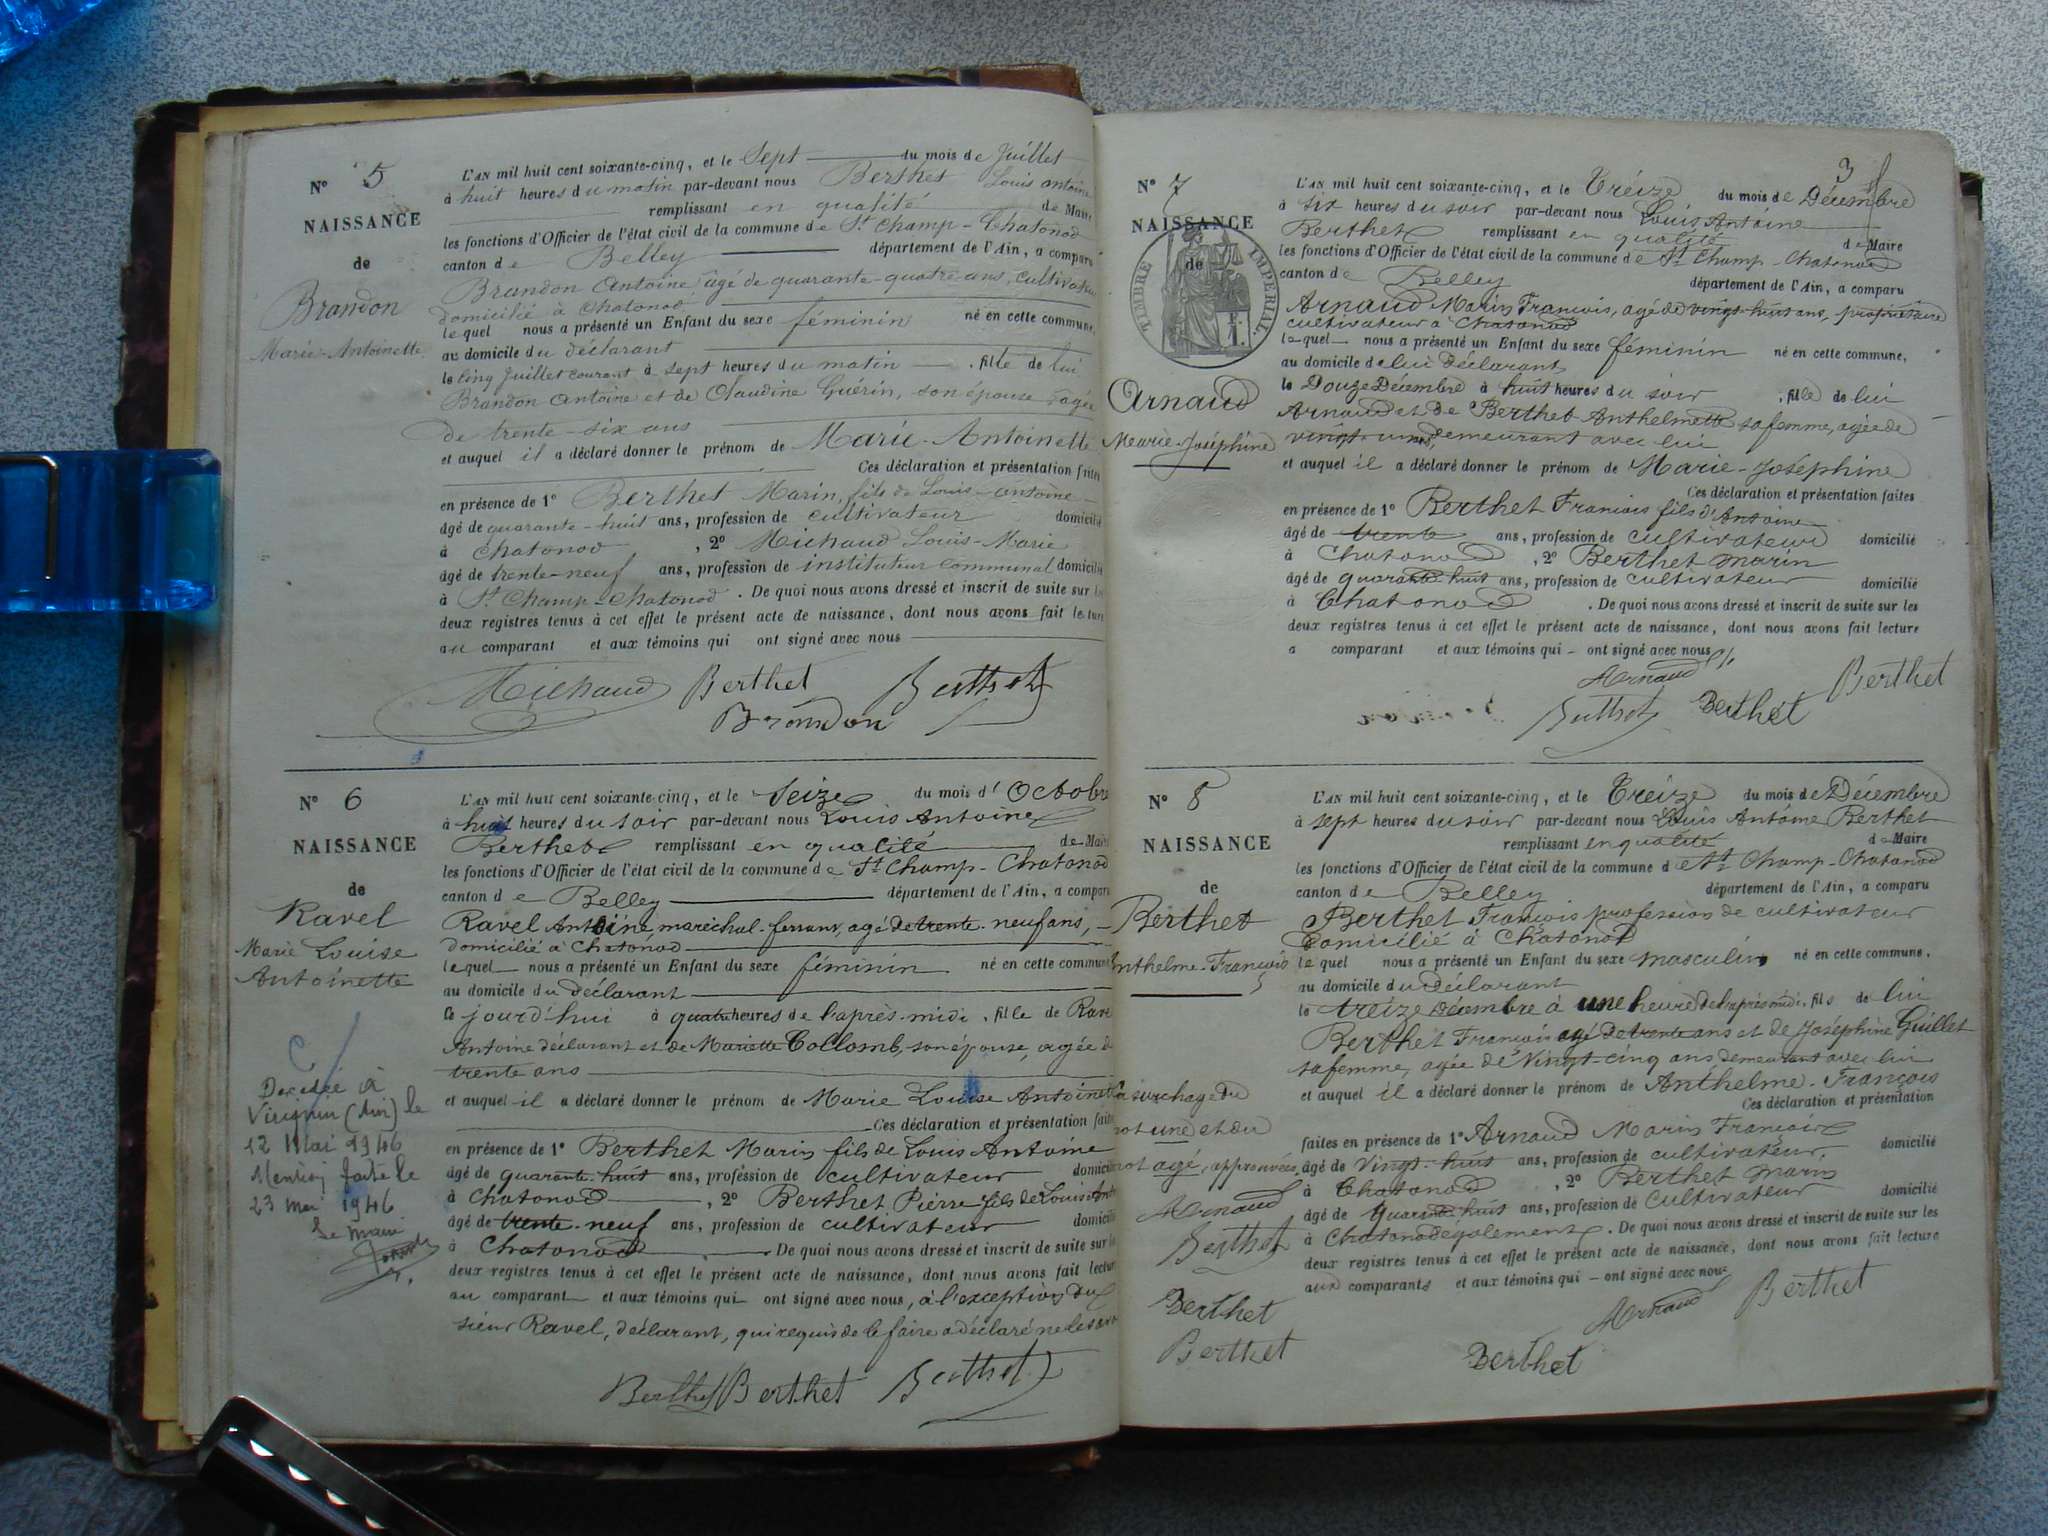 N° 5
NAISSANCE
de
Brandon
Marie-Antoinette
L'AN mil huit cent soixante-cinq, et le Sept du mois de Juillet
à huit heures du matin par-devant nous Berthet Louis Antoine
remplissant en qualité de Maire
les fonctions d'Officier de l'état civil de la commune de St Champ-Chatonod
canton de Belley département de l'Ain, a comparu
Brandon Antoine âgé de quarante-quatre ans, cultivateur
domicilié à Chatonod
lequel nous a présenté un Enfant du sexe féminin né en cette commune,
au domicile du déclarant
le cinq Juillet courant à sept heures du matin, fille de lui
Brandon Antoine et de Claudine Guérin, son épouse agée
de trente-six ans
et auquel il a déclaré donner le prénom de Marie-Antoinette
Ces déclaration et présentation faites
en présence de 1° Berthet Marin, fils de Louis-Antoine
âgé de quarante-huit ans, profession de cultivateur domicilié
à Chatonod, 2° Michaud Louis-Marie
âgé de trente-neuf ans, profession de instituteur communal domicilié
à St Champ-Chatonod. De quoi nous avons dressé et inscrit de suite sur les
deux registres tenus à cet effet le présent acte de naissance, dont nous avons fait lecture
au comparant et aux témoins qui ont signé avec nous
Michaud Berthet Berthet
Brandon
N° 6
NAISSANCE
de
Ravel
Marie Louise
Antoinette
Décédée à
Virignin (Ain) le
12 Mai 1946
Mention faite le
23 mai 1946
Le maire
L'AN mil huit cent soixante-cinq, et le Seize du mois d'Octobre
à huit heures du soir par-devant nous Louis Antoine
Berthet remplissant en qualité de Maire
les fonctions d'Officier de l'état civil de la commune de St Champ-Chatonod
canton de Belley département de l'Ain, a comparu
Ravel Antoine, maréchal-ferrant, agé de trente-neuf ans,
domicilié à Chatonod
lequel nous a présenté un Enfant du sexe féminin né en cette commune
au domicile du déclarant
le jourd'hui à quatre heures de l'après-midi, fille de Ravel
Antoine déclarant et de Mariette Collomb, son épouse, agée de
trente ans
et auquel il a déclaré donner le prénom de Marie Louise Antoinette
Ces déclaration et présentation faites
en présence de 1° Berthet Marin fils de Louis Antoine
âgé de quarante-huit ans, profession de cultivateur domicilié
à Chatonod, 2° Berthet Pierre fils de Louis Antoine
âgé de trente-neuf ans, profession de cultivateur domicilié
à Chatonod. De quoi nous avons dressé et inscrit de suite sur les
deux registres tenus à cet effet le présent acte de naissance, dont nous avons fait lecture
au comparant et aux témoins qui ont signé avec nous, à l'exception du
sieur Ravel, déclarant, qui requis de le faire a déclaré ne le savoir
Berthet Berthet Berthet
3
N° 7
NAISSANCE
de
TIMBRE IMPERIAL
Arnaud
Marie-Joséphine
L'AN mil huit cent soixante-cinq, et le Treize du mois de Décembre
à six heures du soir par-devant nous Louis Antoine
Berthet remplissant en qualité de Maire
les fonctions d'Officier de l'état civil de la commune de St Champ-Chatonod
canton de Belley département de l'Ain, a comparu
Arnaud Marin François, agé de vingt-huit ans, propriétaire
cultivateur à Chatonod
lequel nous a présenté un Enfant du sexe féminin né en cette commune,
au domicile de lui déclarant
le Douze Décembre à huit heures du soir, fille de lui
Arnaud et de Berthet Anthelmette sa femme, agée de
vingt-un ans demeurant avec lui
et auquel il a déclaré donner le prénom de Marie-Joséphine
Ces déclaration et présentation faites
en présence de 1° Berthet François fils d'Antoine
âgé de trente ans, profession de cultivateur domicilié
à Chatonod, 2° Berthet Marin
âgé de quarante-huit ans, profession de cultivateur domicilié
à Chatonod. De quoi nous avons dressé et inscrit de suite sur les
deux registres tenus à cet effet le présent acte de naissance, dont nous avons fait lecture
a comparant et aux témoins qui ont signé avec nous
Arnaud Berthet
Berthet Berthet
N° 8
NAISSANCE
de
Berthet
Anthelme-François
La surchage du
mot une et du
mot agé, approuvées
Arnaud
Berthet
Berthet
Berthet
L'AN mil huit cent soixante-cinq, et le Treize du mois de Décembre
à sept heures du soir par-devant nous Louis Antoine Berthet
remplissant en qualité de Maire
les fonctions d'Officier de l'état civil de la commune de St Champ-Chatonod
canton de Belley département de l'Ain, a comparu
Berthet François profession de cultivateur
Domicilié à Chatonod
lequel nous a présenté un Enfant du sexe masculin né en cette commune,
au domicile du déclarant
le treize Décembre à une heure de l'après-midi, fils de lui
Berthet François agé de trente ans et de Joséphine Guillet
sa femme, agée de Vingt-cinq ans, demeurant avec lui
et auquel il a déclaré donner le prénom de Anthelme-François
Ces déclaration et présentation
faites en présence de 1° Arnaud Marin François
âgé de Vingt-huit ans, profession de cultivateur, domicilié
à Chatonod, 2° Berthet Marin
âgé de quarante-huit ans, profession de cultivateur domicilié
à Chatonod également. De quoi nous avons dressé et inscrit de suite sur les
deux registres tenus à cet effet le présent acte de naissance, dont nous avons fait lecture
aux comparants et aux témoins qui ont signé avec nous
Arnaud Berthet
Berthet